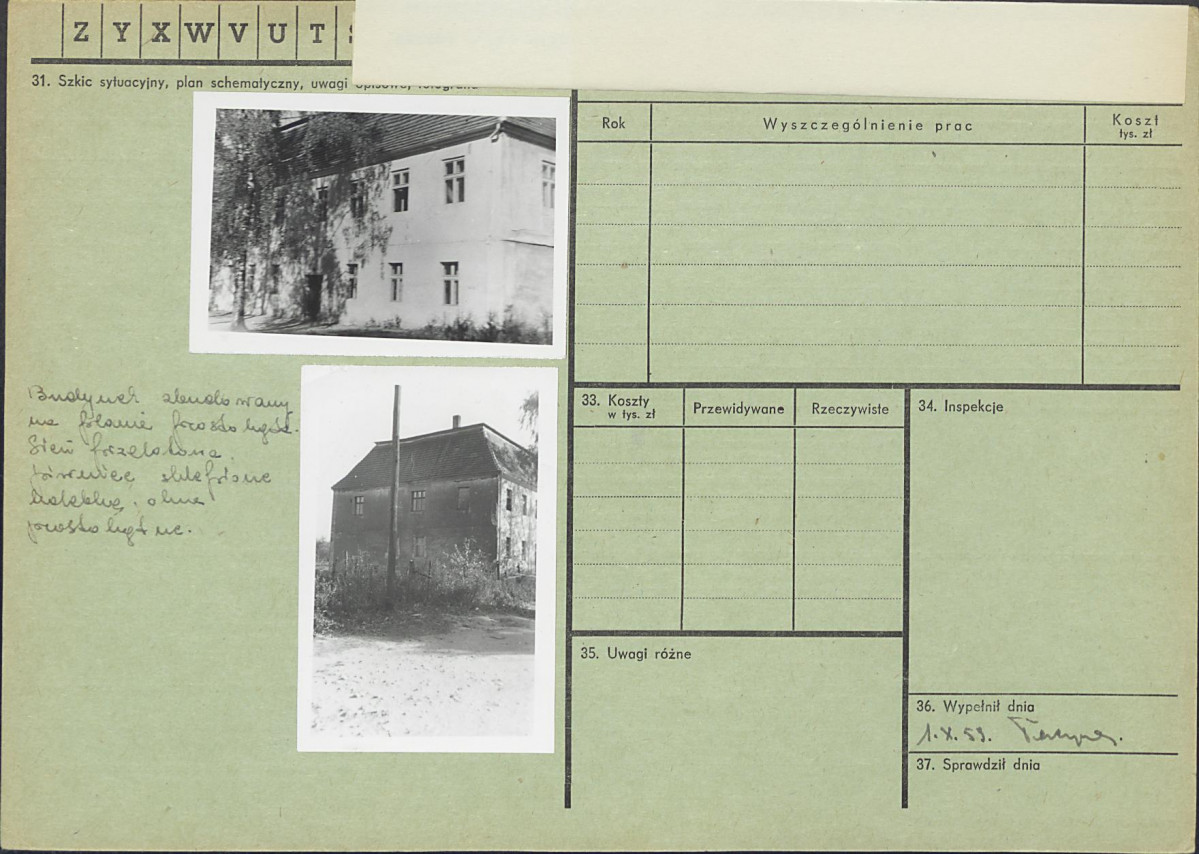 Z Y X W V U T
31. Szkic sytuacyjny, plan schematyczny, uwagi opisowe, fotografia
Rok
Wyszczególnienie prac
Koszt
tys. zł
Budynek zbudowany
na planie prostokąta.
Sień przelotowa.
Piwnice sklepione
kolebką. okna
prostokątne.
33. Koszty
w tys. zł
Przewidywane
Rzeczywiste
34. Inspekcje
35. Uwagi różne
36. Wypełnił dnia
1.X.59.
37. Sprawdził dnia